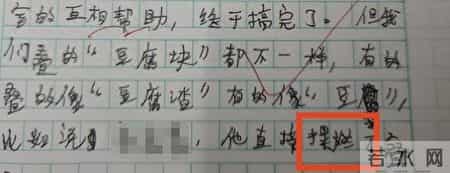 官的互相帮助，终于搞完了。但我
们叠的“豆腐块”都不一样，有的
叠的像“豆腐渣”有的像“豆腐”，
比如说 他直接摆烂了
若水网